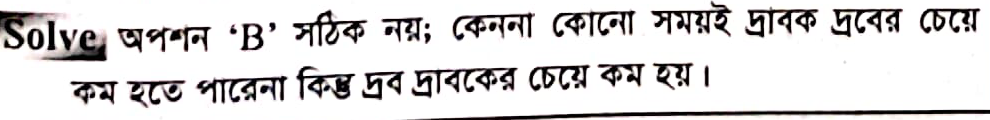 Solve, অপশন ‘B’ সঠিক নয়; কেননা কোনো সময়ই দ্রাবক দ্রবের চেয়ে
কম হতে পারেনা কিন্তু দ্রব দ্রাবকের চেয়ে কম হয়।